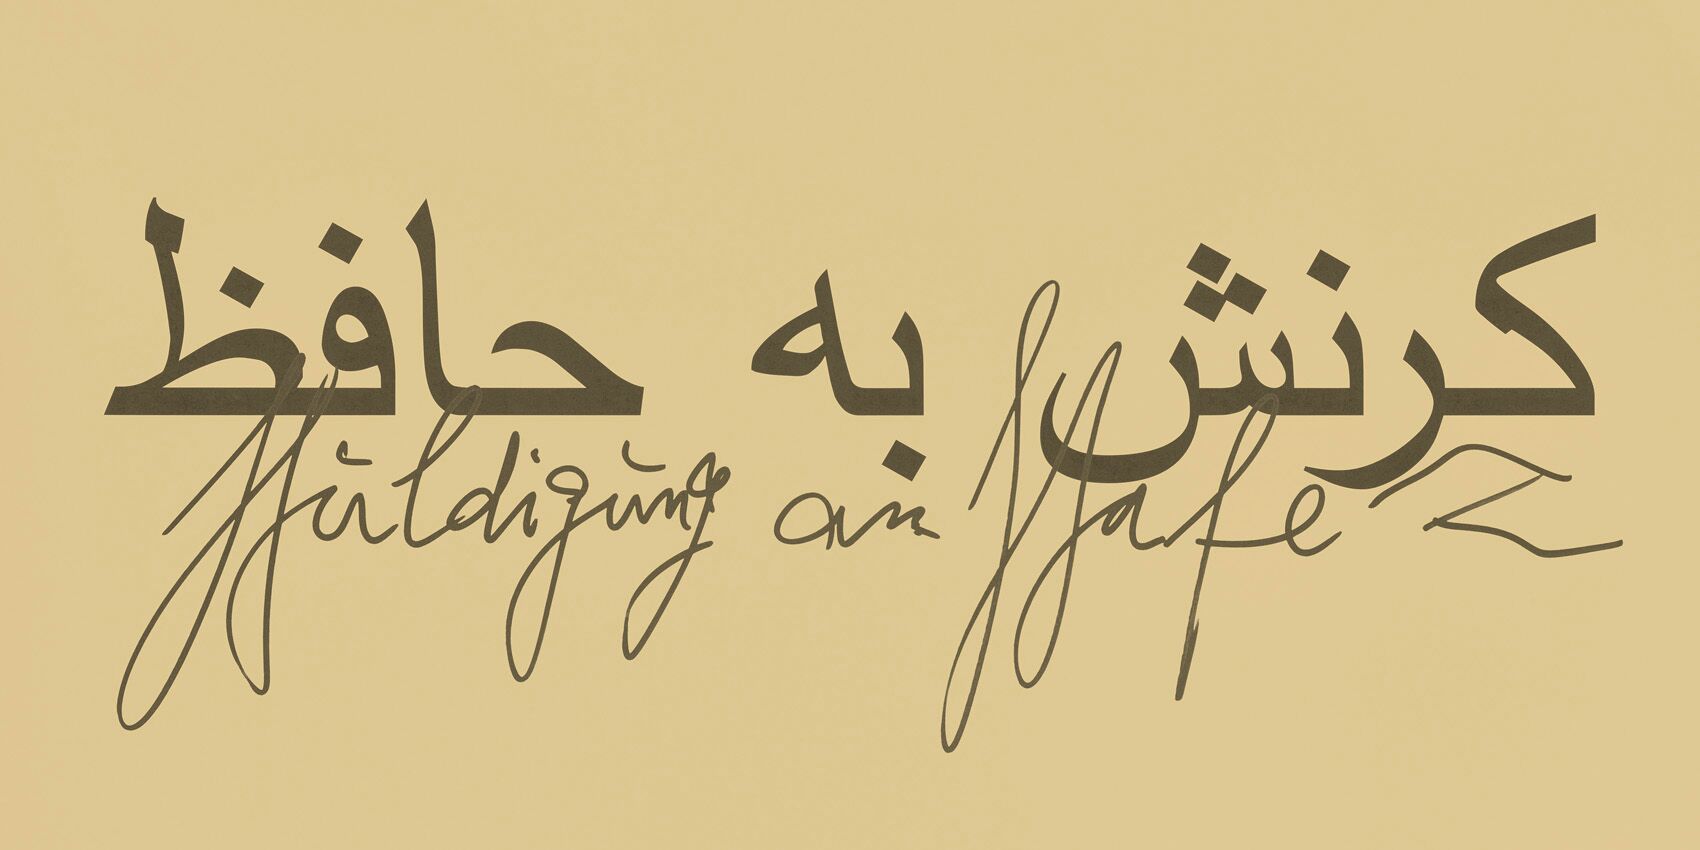 کرنش به حافظ
Huldigung an Hafez